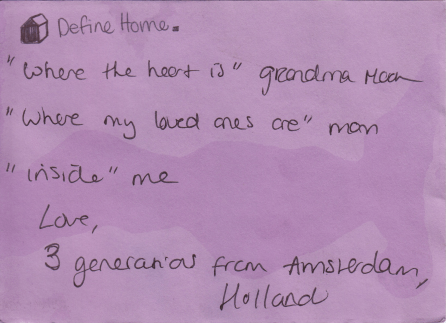 Define Home.
"Where the heart is" grandma
"Where my loved ones are" mom
"inside" me
Love,
3 generations from Amsterdam,
Holland